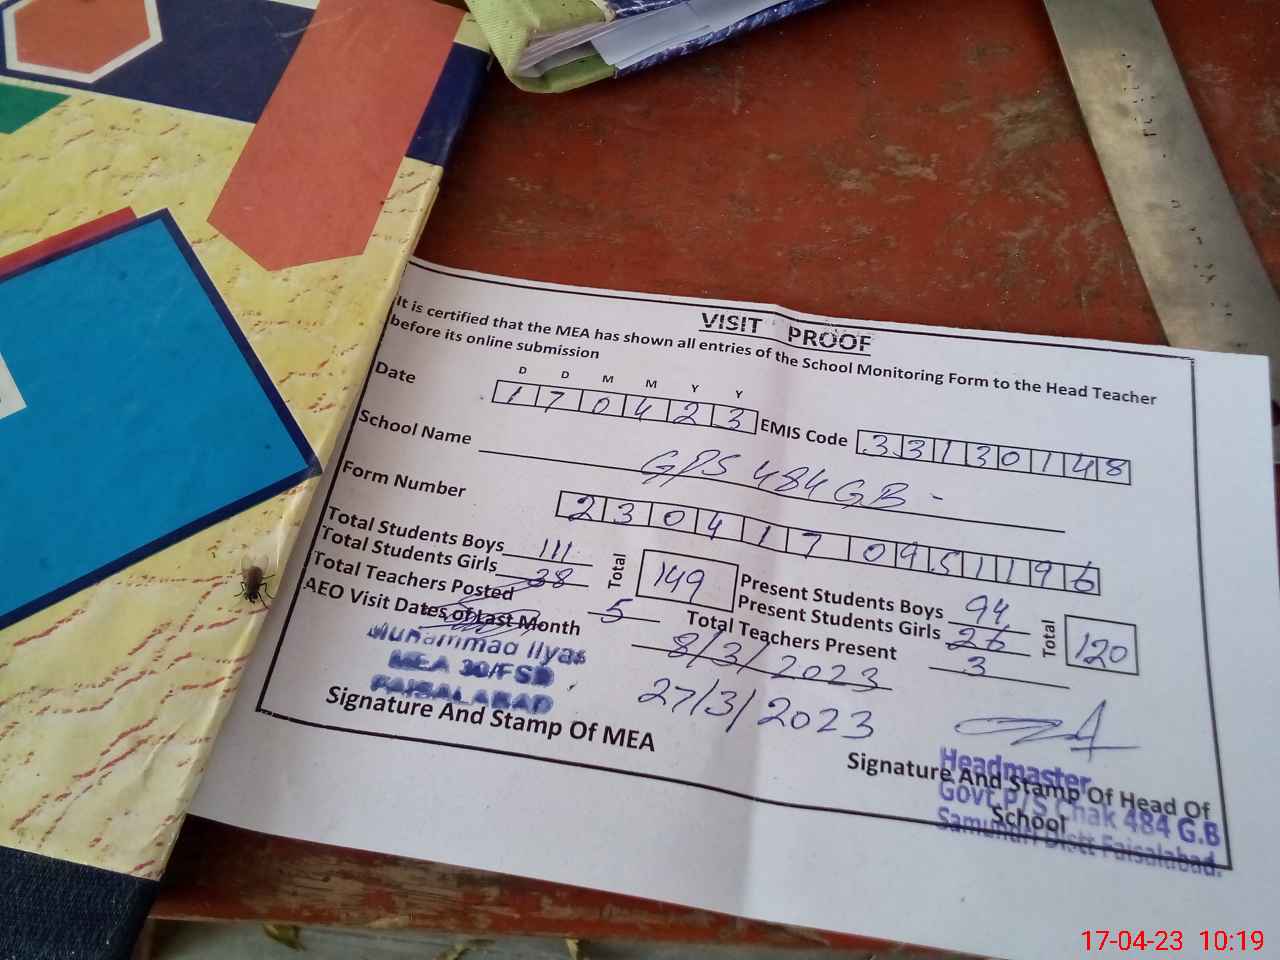 VISIT PROOF
It is certified that the MEA has shown all entries of the School Monitoring Form to the Head Teacher
before its online submission
D D M M Y Y
Date 1 7 0 4 2 3 EMIS Code 3 3 1 3 0 1 4 8
School Name GPS 484 GB -
Form Number 2 3 0 4 1 7 0 9 5 1 1 9 6
Total Students Boys 111 Total 149 Present Students Boys 94 Total 120
Total Students Girls 38 Present Students Girls 26
Total Teachers Posted 5 Total Teachers Present 3
AEO Visit Dates of Last Month 8/3/2023
27/3/2023
Muhammad Ilyas
MEA 30/FSD
FAISALABAD
Signature And Stamp Of MEA
Signature And Stamp Of Head Of
School
Headmaster
Govt.P/S Chak 484 G.B
Samundri Distt Faisalabad.
17-04-23 10:19